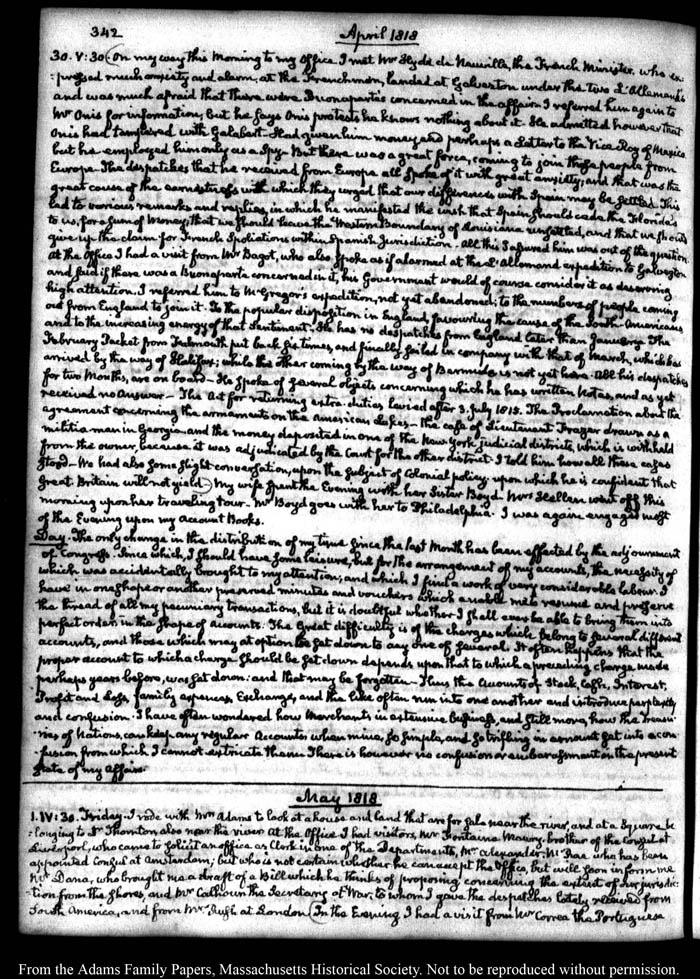 342
April 1818
30. V:30. On my way this Morning to my Office I met Mr Hyde de Neuville, the French Minister, who ex-
pressed much anxiety and alarm, at the Frenchmen, landed at Galveston under the two L'Allemands
and was much afraid that there were Buonaparte's concerned in the affair. I referred him again to
Mr Onis for information, but he says Onis protests he knows nothing about it. He admitted however that
Onis had tampered with Galabert. Had given him money and perhaps a Letter to the Vice Roy of Mexico
but he employed him only as a Spy. But there was a great force, coming to join those people from
Europe. The despatches that he received from Europe all spoke of it with great anxiety, and that was the
great cause of the earnestness with which they urged that our differences with Spain may be settled. This
led to various remarks and replies, in which he manifested the wish that Spain should cede the Florida's
to us, for a sum of Money, that we should leave the Western Boundary of Louisiana unsettled, and that we should
give up the claim for French Spoliations within Spanish Jurisdiction. All this I assured him was out of the question
At the Office I had a visit from Mr Bagot, who also spoke as if alarmed at the L'Allemand expedition to Galveston
and said if there was a Buonaparte concerned in it, his Government would of course consider it as deserving
high attention. I referred him to McGregor's expedition, not yet abandoned; to the numbers of people coming
out from England to join it. To the popular disposition in England, favouring the cause of the South-Americans
and to the increasing energy of that Sentiment. He has no despatches from England later than January. The
February Packet from Falmouth put back six times, and finally sailed in company with that of March, which has
arrived by the way of Halifax; while the other coming by the way of Bermuda is not yet here. All his despatches
for two Months, are on board. He spoke of several objects concerning which he has written Notes, and as yet
received no Answer. The Act for returning extra-duties levied after 3. July 1815. The Proclamation about the
agreement concerning the armaments on the American Lakes. The case of Lieutenant Frazer drawn as a
militia-man in Georgia and the money deposited in one of the New York judicial districts, which is withheld
from the owner, because it was adjudicated by the Court for the other district. I told him how all these cases
stood. We had also some slight conversation, upon the subject of Colonial policy; upon which he is confident that
Great Britain will not yield. My wife spent the Evening with her Sister Boyd. Mrs Hellen went off this
morning upon her traveling tour. Mr Boyd goes with her to Philadelphia. I was again engaged most
of the Evening upon my Account Books.
Day. The only change in the distribution of my time since the last Month has been effected by the adjournment
of Congress. Since which, I should have some leisure, but for the arrangement of my accounts, the necessity of
which was accidentally brought to my attention, and which I find a work of very considerable labour. I
have in one shape or another preserved minutes and vouchers which enable me to resume and preserve
the thread of all my pecuniary transactions, but it is doubtful whether I shall ever be able to bring them into
perfect order in the shape of accounts. The great difficulty is of the charges which belong to several different
accounts, and those which may at option be set down to any one of several. It often happens that the
proper account to which a charge should be set down depends upon that to which a preceding charge made
perhaps years before, was set down: and that may be forgotten. Thus the Accounts of Stock, Cash, Interest,
Profit and Loss, family expences, Exchange, and the like often run into one another and introduce perplexity
and confusion. I have often wondered how Merchants in extensive business, and still more, how the Treasu-
ries of Nations, can keep any regular Accounts when mine, so simple, and so trifling in amount get into a con-
fusion from which I cannot extricate them. There is however no confusion or embarrassment in the present
state of my affairs.
May 1818
1. IV:30. Friday. I rode with Mrs Adams to look at a house and land that are for sale near the river, and at a Square be-
longing to Dr Thornton also near the river. At the Office I had visitors, Mr Fontaine Maury, brother of the Consul at
Liverpool, who came to solicit an office as Clerk in one of the Departments, Mr Alexander McRae who has been
appointed Consul at Amsterdam; but who is not certain whether he can accept the Office, but will soon inform me
Mr Dana, who brought me a draft of a Bill which he thinks of proposing concerning the extent of our jurisdic-
tion from the shores, and Mr Calhoun the Secretary of War; to whom I gave the despatches lately received from
South America, and from Mr Rush at London. In the Evening I had a visit from Mr Correa the Portuguese
From the Adams Family Papers, Massachusetts Historical Society. Not to be reproduced without permission.